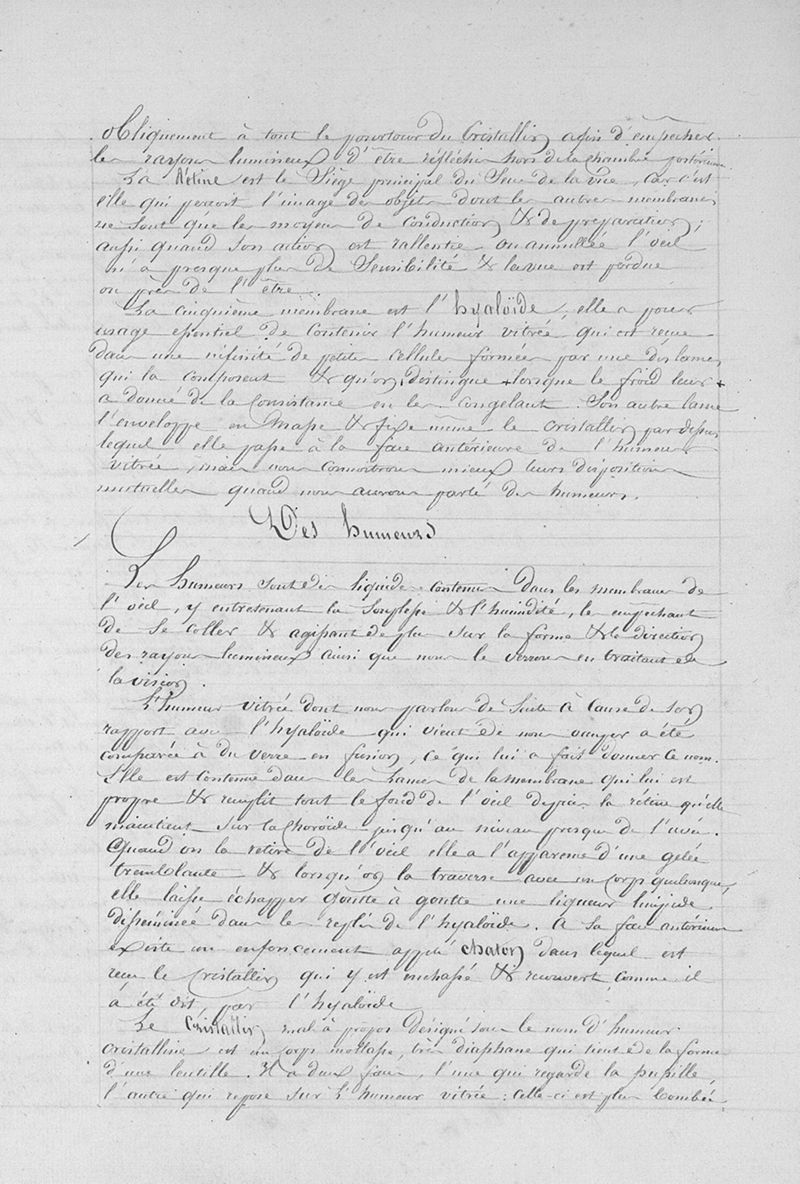 obliquement à tout le pourtour du Cristallin afin d'empêcher
les rayons lumineux d'être réfléchis hors de la chambre postérieure
La Rétine est le Siège principal du Sens de la vue, car c'est
elle qui perçoit l'image des objets dont les autres membranes
ne sont que les moyens de conduction & de préparation;
aussi quand son action est rallentie ou annullée l'oeil
n'a presque plus de Sensibilité & la vue est perdue
ou près de l'être.
La cinquième membrane est l'hyaloïde, elle a pour
usage essentiel de contenir l'humeur vitrée qui est reçue
dans une infinité de petites cellules formées par une des lames
qui la composent & qu'on distingue lorsque le froid leur
a donné de la Consistance en les congelant. Son autre lame
l'enveloppe en masse & fixe même le cristallin par dessus
lequel elle passe à la face antérieure de l'humeur
vitrée, mais nous connoitrons mieux leurs dispositions
mutuelles quand nous aurons parlé des humeurs.
Des humeurs
Les humeurs sont des liquides contenus dans les membranes de
l'oeil, y entretenant la souplesse & l'humidité, les empêchant
de se coller & agissant de plus sur la forme & la direction
des rayons lumineux ainsi que nous le verrons en traitant de
la vision.
L'humeur vitrée dont nous parlons de suite à cause de son
rapport avec l'hyaloïde qui vient de nous occuper a été
comparée à du verre en fusion, ce qui lui a fait donner ce nom.
Elle est contenue dans les lames de la membrane qui lui est
propre & remplit tout le fond de l'oeil depuis la rétine qu'elle
maintient sur la Choroïde jusqu'au niveau presque de l'uvée.
Quand on la retire de l'oeil elle a l'apparence d'une gelée
tremblante & lorsqu'on la traverse avec un corps quelconque,
elle laisse échapper goutte à goutte une liqueur limpide
disséminée dans les replis de l'hyaloïde. A sa face antérieure
existe un enfoncement appelé chaton dans lequel est
reçu le Cristallin qui y est enchassé & recouvert, comme il
a été dit, par l'hyaloïde
Le Cristallin mal à propos désigné sous le nom d'humeur
cristalline est un corps mollasse, très diaphane qui tient de la forme
d'une lentille. Il a deux faces, l'une qui regarde la pupille,
l'autre qui repose sur l'humeur vitrée: Celle-ci est plus bombée